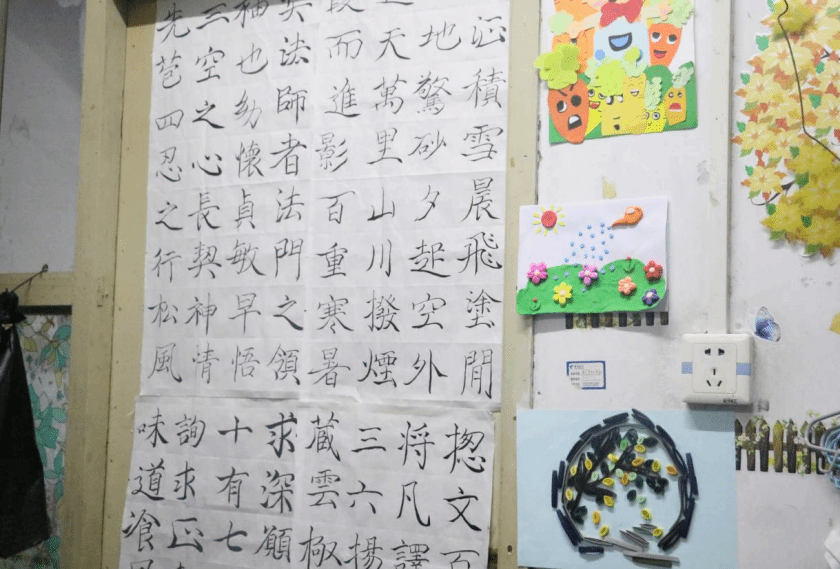 積雪晨飛塗閒
地驚砂夕起空外
天萬里山川撥煙
而進影百重寒暑
法師者法門之領
袖也幼懷貞敏早悟
三空之心長契神情
先苞四忍之行松風
揔文百
将凡譯
三六揚
藏雲極
求深願
十有七
詢求正
味道飡